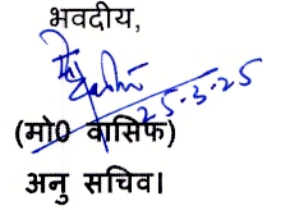 भवदीय,
25-3-25
(मो0 वासिफ)
अनु सचिव।